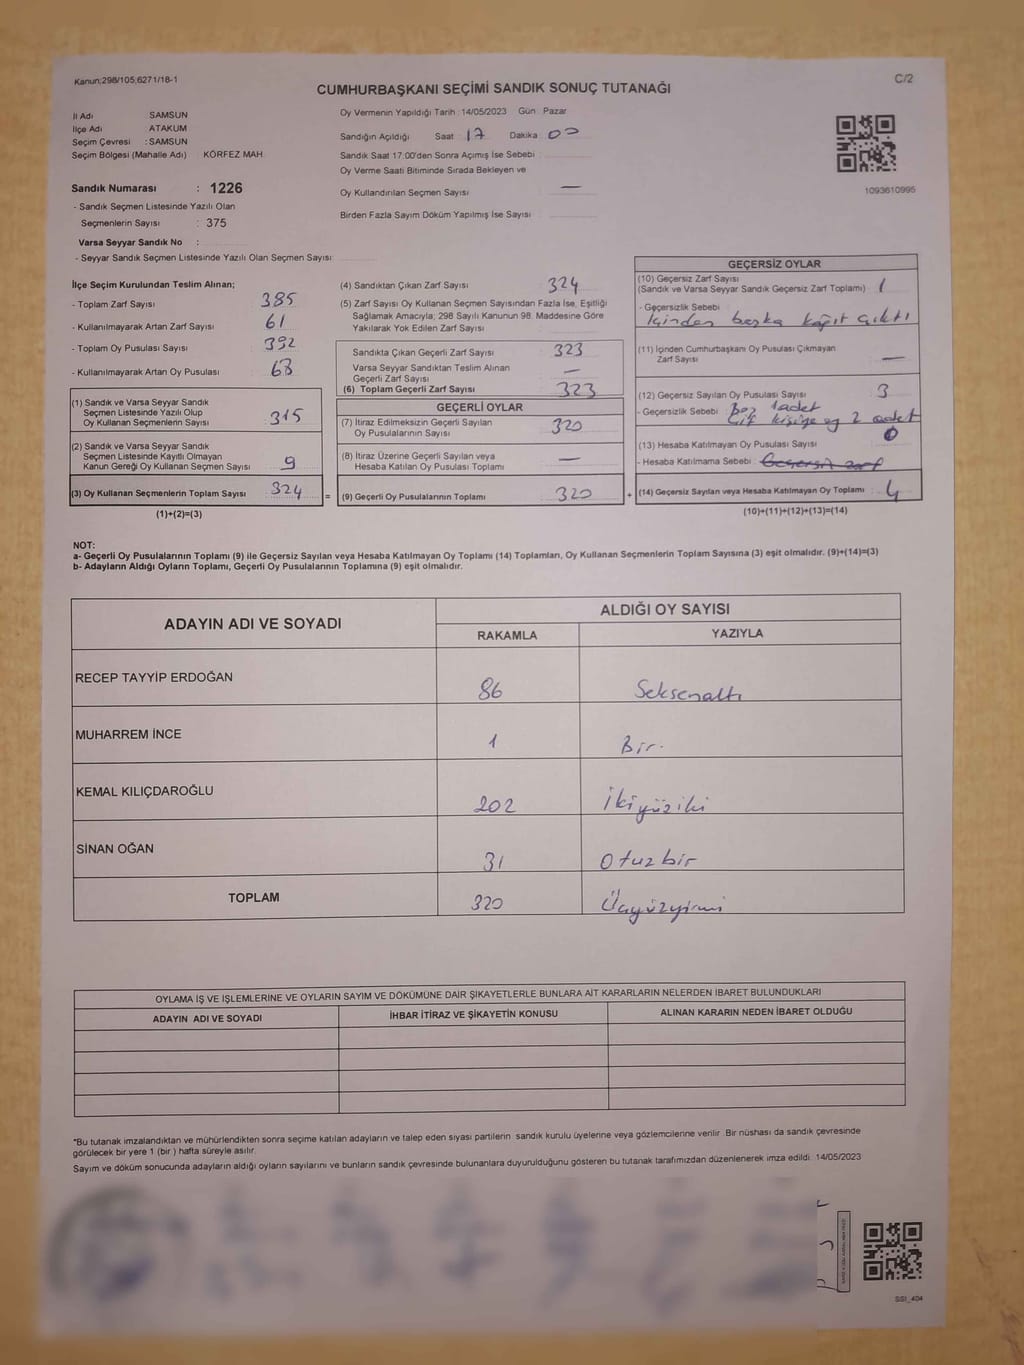 Kanun;298/105,6271/18-1
C/2
CUMHURBAŞKANI SEÇİMİ SANDIK SONUÇ TUTANAĞI
İl Adı SAMSUN
İlçe Adı ATAKUM
Seçim Çevresi : SAMSUN
Seçim Bölgesi (Mahalle Adı) KÖRFEZ MAH.
Oy Vermenin Yapıldığı Tarih : 14/05/2023 Gün : Pazar
Sandığın Açıldığı Saat 17 Dakika 00
Sandık Saat 17:00'den Sonra Açımış İse Sebebi :
Oy Verme Saati Bitiminde Sırada Bekleyen ve
Oy Kullandırılan Seçmen Sayısı —
Birden Fazla Sayım Döküm Yapılmış İse Sayısı
1093610995
Sandık Numarası : 1226
- Sandık Seçmen Listesinde Yazılı Olan
Seçmenlerin Sayısı : 375
Varsa Seyyar Sandık No :
- Seyyar Sandık Seçmen Listesinde Yazılı Olan Seçmen Sayısı:
İlçe Seçim Kurulundan Teslim Alınan;
- Toplam Zarf Sayısı 385
- Kullanılmayarak Artan Zarf Sayısı 61
- Toplam Oy Pusulası Sayısı 392
- Kullanılmayarak Artan Oy Pusulası 68
(1) Sandık ve Varsa Seyyar Sandık
Seçmen Listesinde Yazılı Olup
Oy Kullanan Seçmenlerin Sayısı 315
(2) Sandık ve Varsa Seyyar Sandık
Seçmen Listesinde Kayıtlı Olmayan
Kanun Gereği Oy Kullanan Seçmen Sayısı 9
(3) Oy Kullanan Seçmenlerin Toplam Sayısı 324 =
(1)+(2)=(3)
(4) Sandıktan Çıkan Zarf Sayısı 324
(5) Zarf Sayısı Oy Kullanan Seçmen Sayısından Fazla İse, Eşitliği
Sağlamak Amacıyla; 298 Sayılı Kanunun 98. Maddesine Göre
Yakılarak Yok Edilen Zarf Sayısı
Sandıkta Çıkan Geçerli Zarf Sayısı 323
Varsa Seyyar Sandıktan Teslim Alınan
Geçerli Zarf Sayısı —
(6) Toplam Geçerli Zarf Sayısı 323
GEÇERLİ OYLAR
(7) İtiraz Edilmeksizin Geçerli Sayılan
Oy Pusulalarının Sayısı 320
(8) İtiraz Üzerine Geçerli Sayılan veya
Hesaba Katılan Oy Pusulası Toplamı —
(9) Geçerli Oy Pusulalarının Toplamı 320 +
GEÇERSİZ OYLAR
(10) Geçersiz Zarf Sayısı
(Sandık ve Varsa Seyyar Sandık Geçersiz Zarf Toplamı) 1
- Geçersizlik Sebebi :
İçinden başka kağıt çıktı
(11) İçinden Cumhurbaşkanı Oy Pusulası Çıkmayan
Zarf Sayısı —
(12) Geçersiz Sayılan Oy Pusulası Sayısı 3
- Geçersizlik Sebebi : Boş 1 adet
kişiye oy 2 adet
(13) Hesaba Katılmayan Oy Pusulası Sayısı 0
- Hesaba Katılmama Sebebi : Geçersiz zarf
(14) Geçersiz Sayılan veya Hesaba Katılmayan Oy Toplamı : 4
(10)+(11)+(12)+(13)=(14)
NOT:
a- Geçerli Oy Pusulalarının Toplamı (9) ile Geçersiz Sayılan veya Hesaba Katılmayan Oy Toplamı (14) Toplamları, Oy Kullanan Seçmenlerin Toplam Sayısına (3) eşit olmalıdır. (9)+(14)=(3)
b- Adayların Aldığı Oyların Toplamı, Geçerli Oy Pusulalarının Toplamına (9) eşit olmalıdır.
ADAYIN ADI VE SOYADI ALDIĞI OY SAYISI
RAKAMLA YAZIYLA
RECEP TAYYİP ERDOĞAN 86 Seksenaltı
MUHARREM İNCE 1 Bir.
KEMAL KILIÇDAROĞLU 202 İkiyüziki
SİNAN OĞAN 31 Otuzbir
TOPLAM 320 Üçyüzyirmi
OYLAMA İŞ VE İŞLEMLERİNE VE OYLARIN SAYIM VE DÖKÜMÜNE DAİR ŞİKAYETLERLE BUNLARA AİT KARARLARIN NELERDEN İBARET BULUNDUKLARI
ADAYIN ADI VE SOYADI İHBAR İTİRAZ VE ŞİKAYETİN KONUSU ALINAN KARARIN NEDEN İBARET OLDUĞU
*Bu tutanak imzalandıktan ve mühürlendikten sonra seçime katılan adayların ve talep eden siyasi partilerin sandık kurulu üyelerine veya gözlemcilerine verilir. Bir nüshası da sandık çevresinde
görülecek bir yere 1 (bir ) hafta süreyle asılır.
Sayım ve döküm sonucunda adayların aldığı oyların sayılarını ve bunların sandık çevresinde bulunanlara duyurulduğunu gösteren bu tutanak tarafımızdan düzenlenerek imza edildi. 14/05/2023
SSI_404